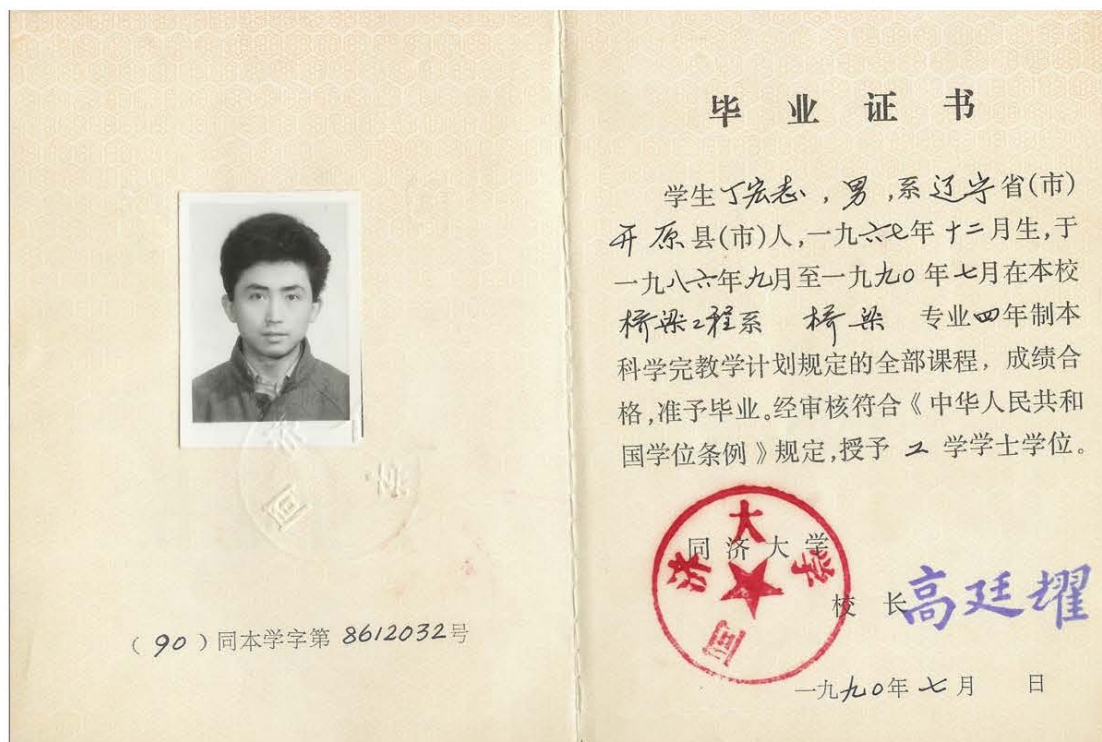 （90）同本学字第 8612032号
毕业证书
学生丁宏志，男，系辽宁省(市)
开原县(市)人，一九六七年十二月生，于
一九八六年九月至一九九0年七月在本校
桥梁工程系 桥梁 专业四年制本
科学完教学计划规定的全部课程，成绩合
格，准予毕业。经审核符合《中华人民共和
国学位条例》规定，授予 工 学学士学位。
同济大学
同济大学
校长高廷耀
一九九0年七月 日
同济大学